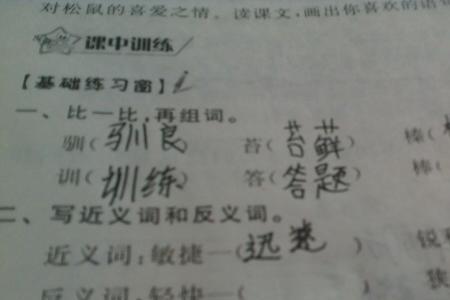 对松鼠的喜爱之情。读课文,画出你喜欢的语句
课中训练
【基础练习窗】
一、比一比,再组词。
驯(驯良) 苔(苔藓) 棒(
训(训练) 答(答题) 棒(
二、写近义词和反义词。
近义词:敏捷—(迅速) 锐
反义词:轻快—( ) 狭